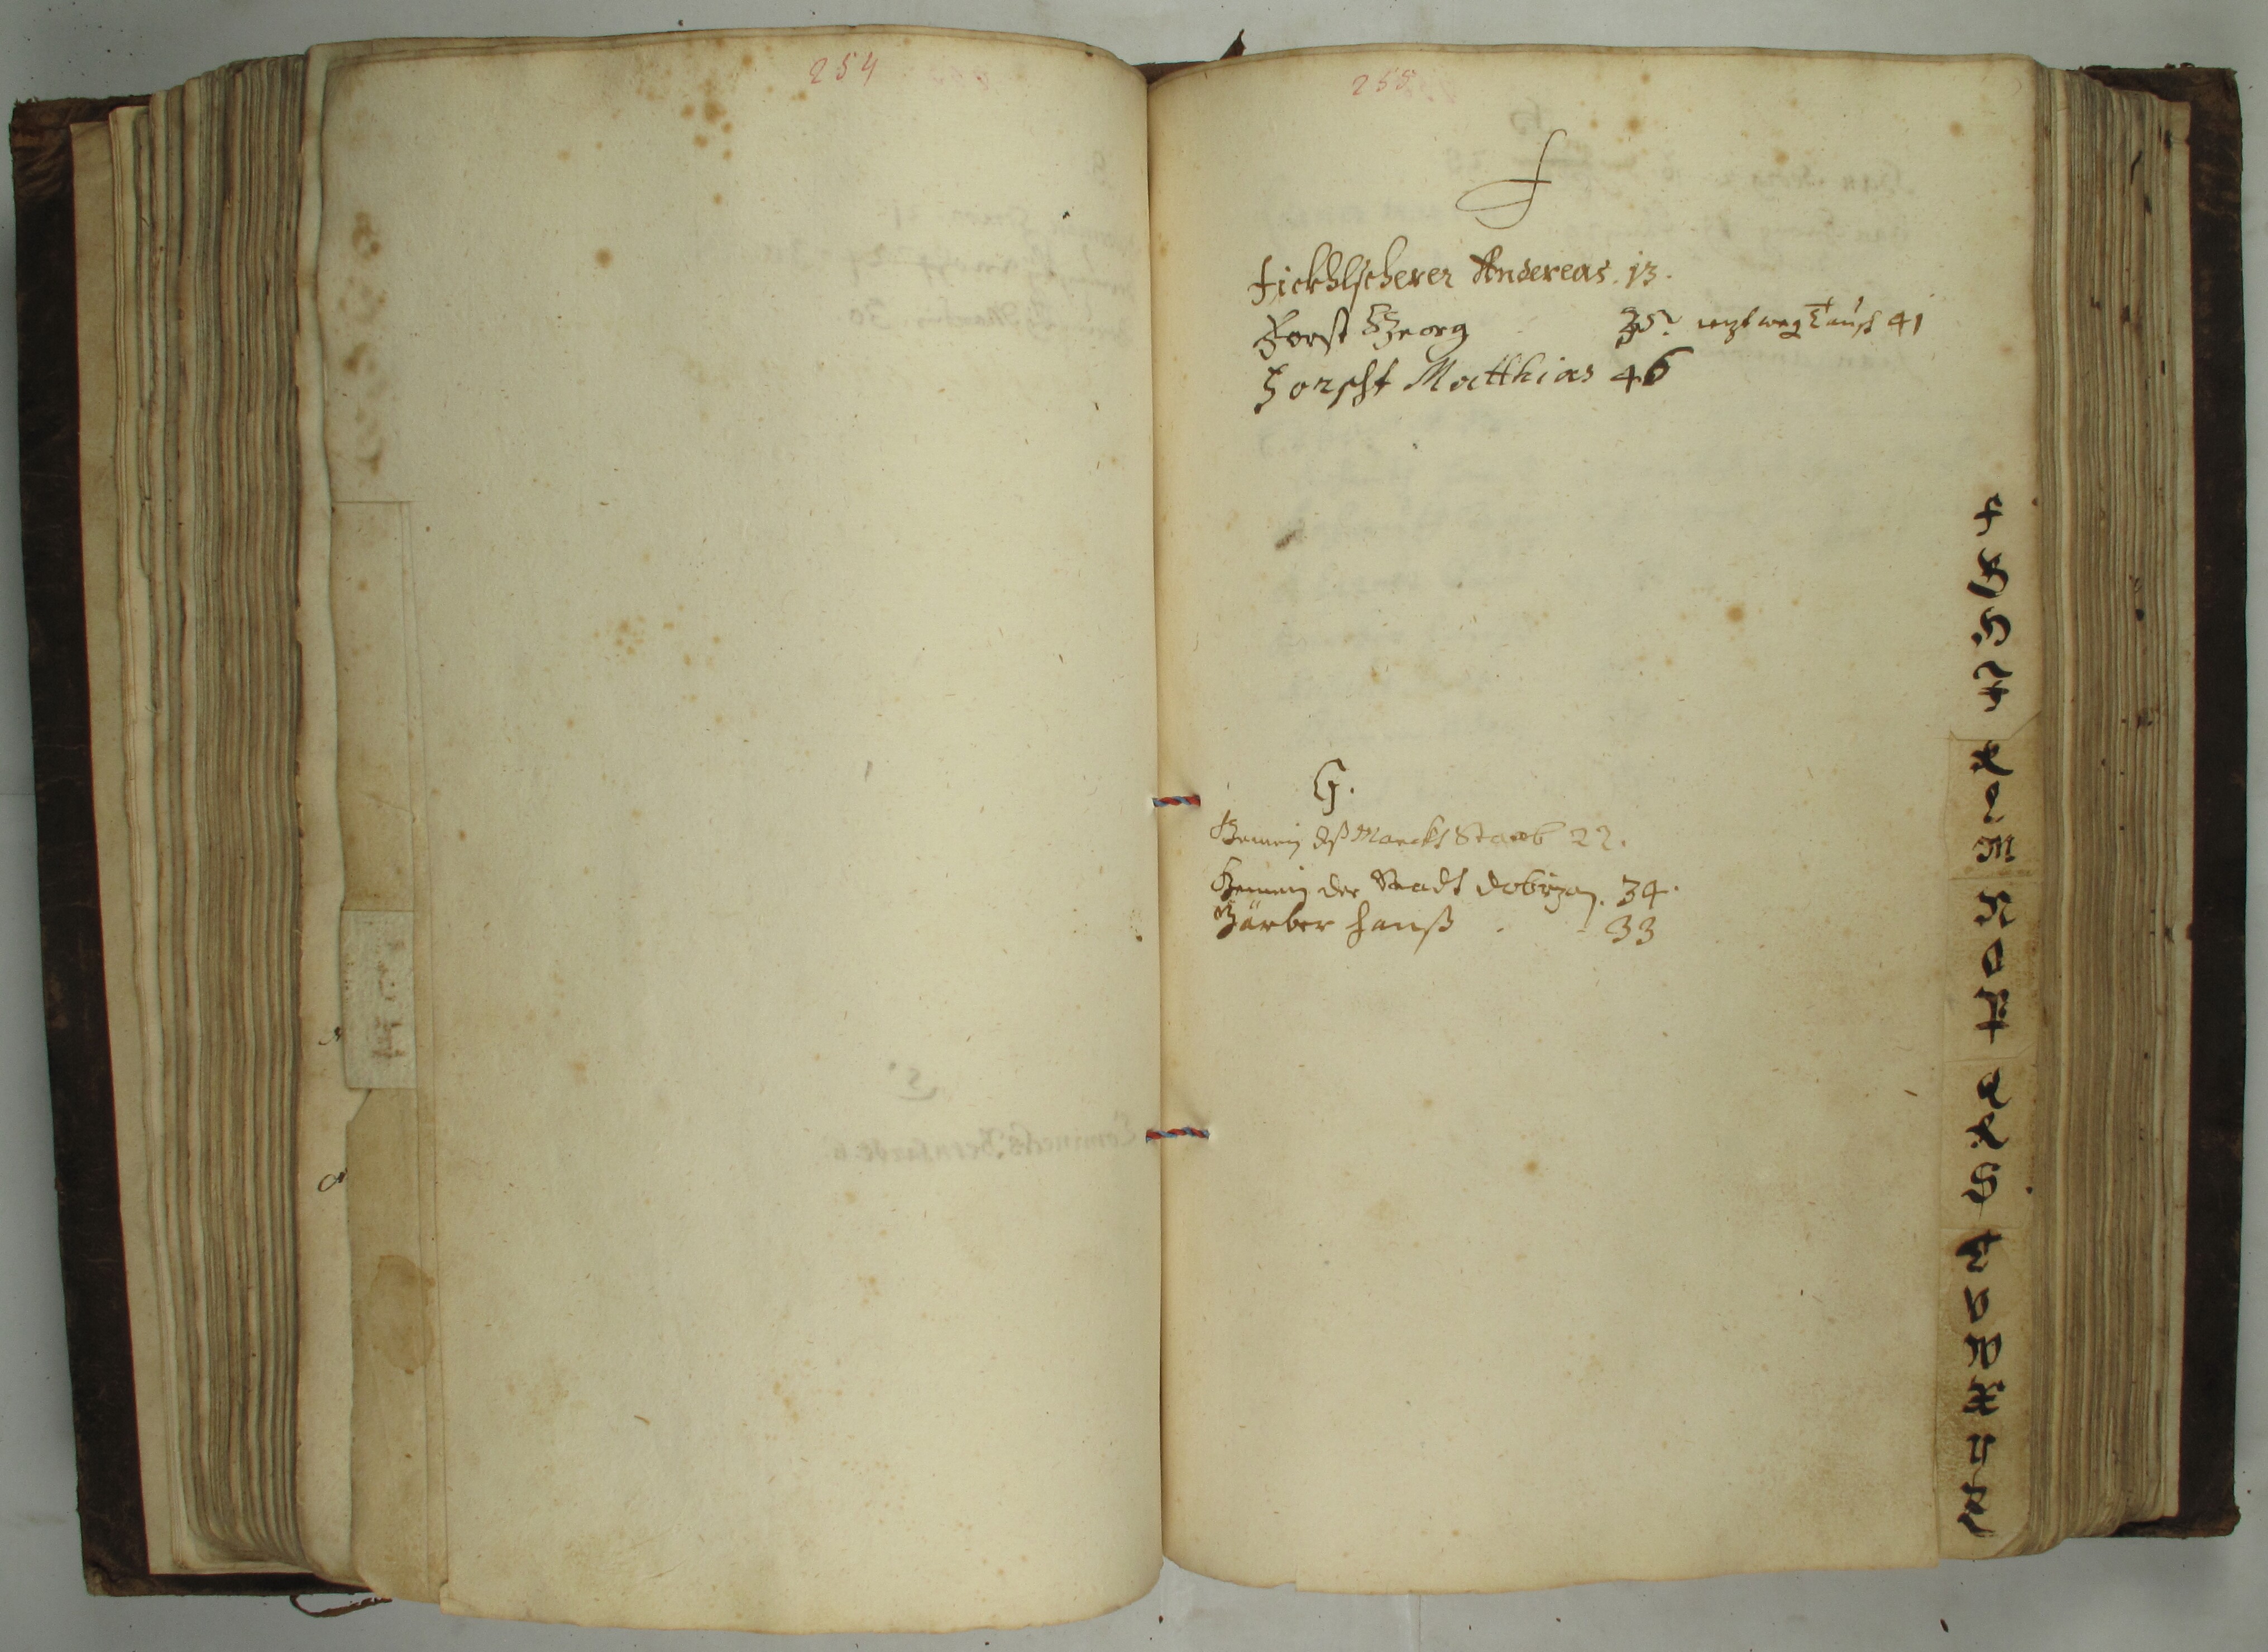 254
255
F
Fickhlscherer Andereas. 13.
Forst Georg 35. auf 41
Forscht Matthias 46
G.
Gemein deß Marckts Staab 22.
Gemein der Stadt Dobrzan. 34.
Gärber Hanß 33
F
G
H
J
K
L
M
N
O
P
Q
R
S
T
V
W
X
Y
Z